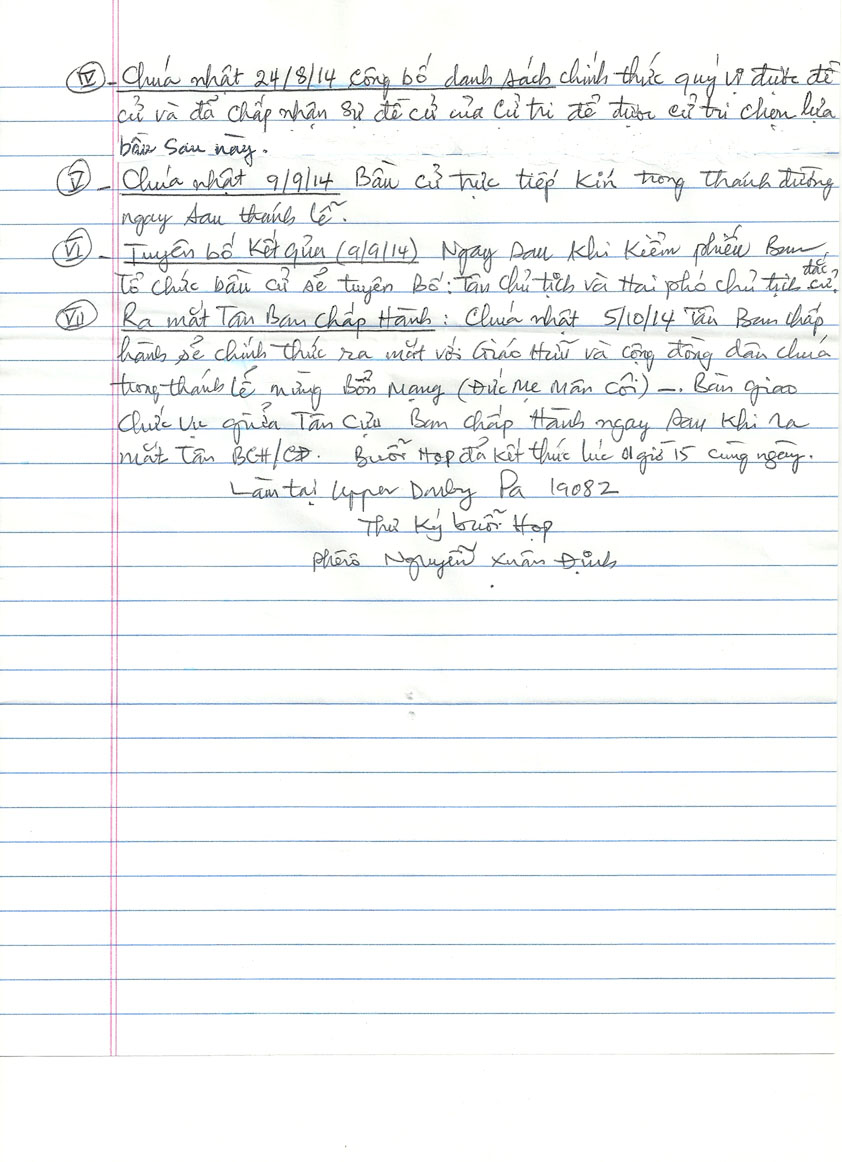 IV - Chúa nhật 24/8/14 công bố danh sách chính thức quý vị được đề
cử và đã chấp nhận sự đề cử của cử tri để được cử tri chọn lựa
bầu sau này.
V - Chúa nhật 9/9/14 Bầu cử trực tiếp kín trong thánh đường
ngay sau thánh lễ.
VI - Tuyên bố kết qủa (9/9/14) Ngay sau khi kiểm phiếu Ban
Tổ chức bầu cử sẽ tuyên bố: Tân chủ tịch và Hai phó chủ tịch đắc cử.
VII Ra mắt Tân Ban chấp Hành: Chúa nhật 5/10/14 Tân Ban chấp
hành sẽ chính thức ra mắt với Giáo Hữu và cộng đồng dân chúa
trong thánh lễ mừng Bổn Mạng (Đức Mẹ Mân Côi) -. Bàn giao
chức vụ giữa Tân Cựu Ban chấp Hành ngay sau khi ra
mắt Tân BCH/CĐ. Buổi Họp đã kết thúc lúc 01 giờ 15 cùng ngày.
Làm tại Upper Darby Pa 19082
Thư Ký buổi Họp
phêrô Nguyễn Xuân Định